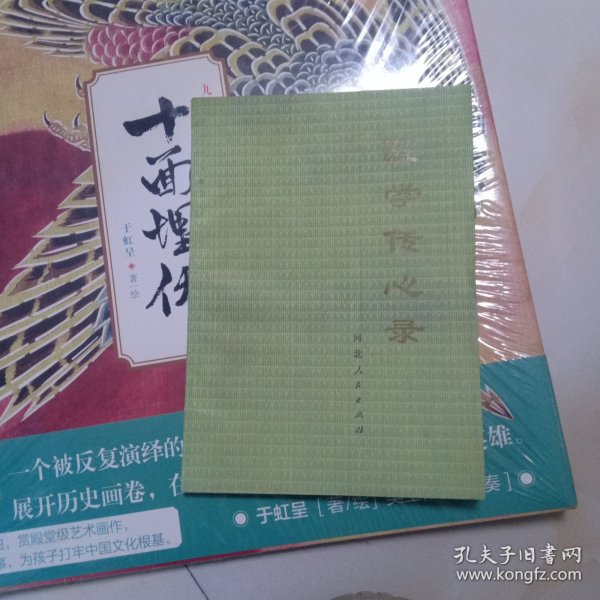 九
十面埋伏
于虹呈 著/绘
医学传心录
河北人民出版社
一个被反复演绎的
英雄。
展开历史画卷，在
于虹呈 [著/绘]
奏]
曲，赏殿堂级艺术画作，
事，为孩子打牢中国文化根基。
孔夫子旧书网
www.kongfz.com